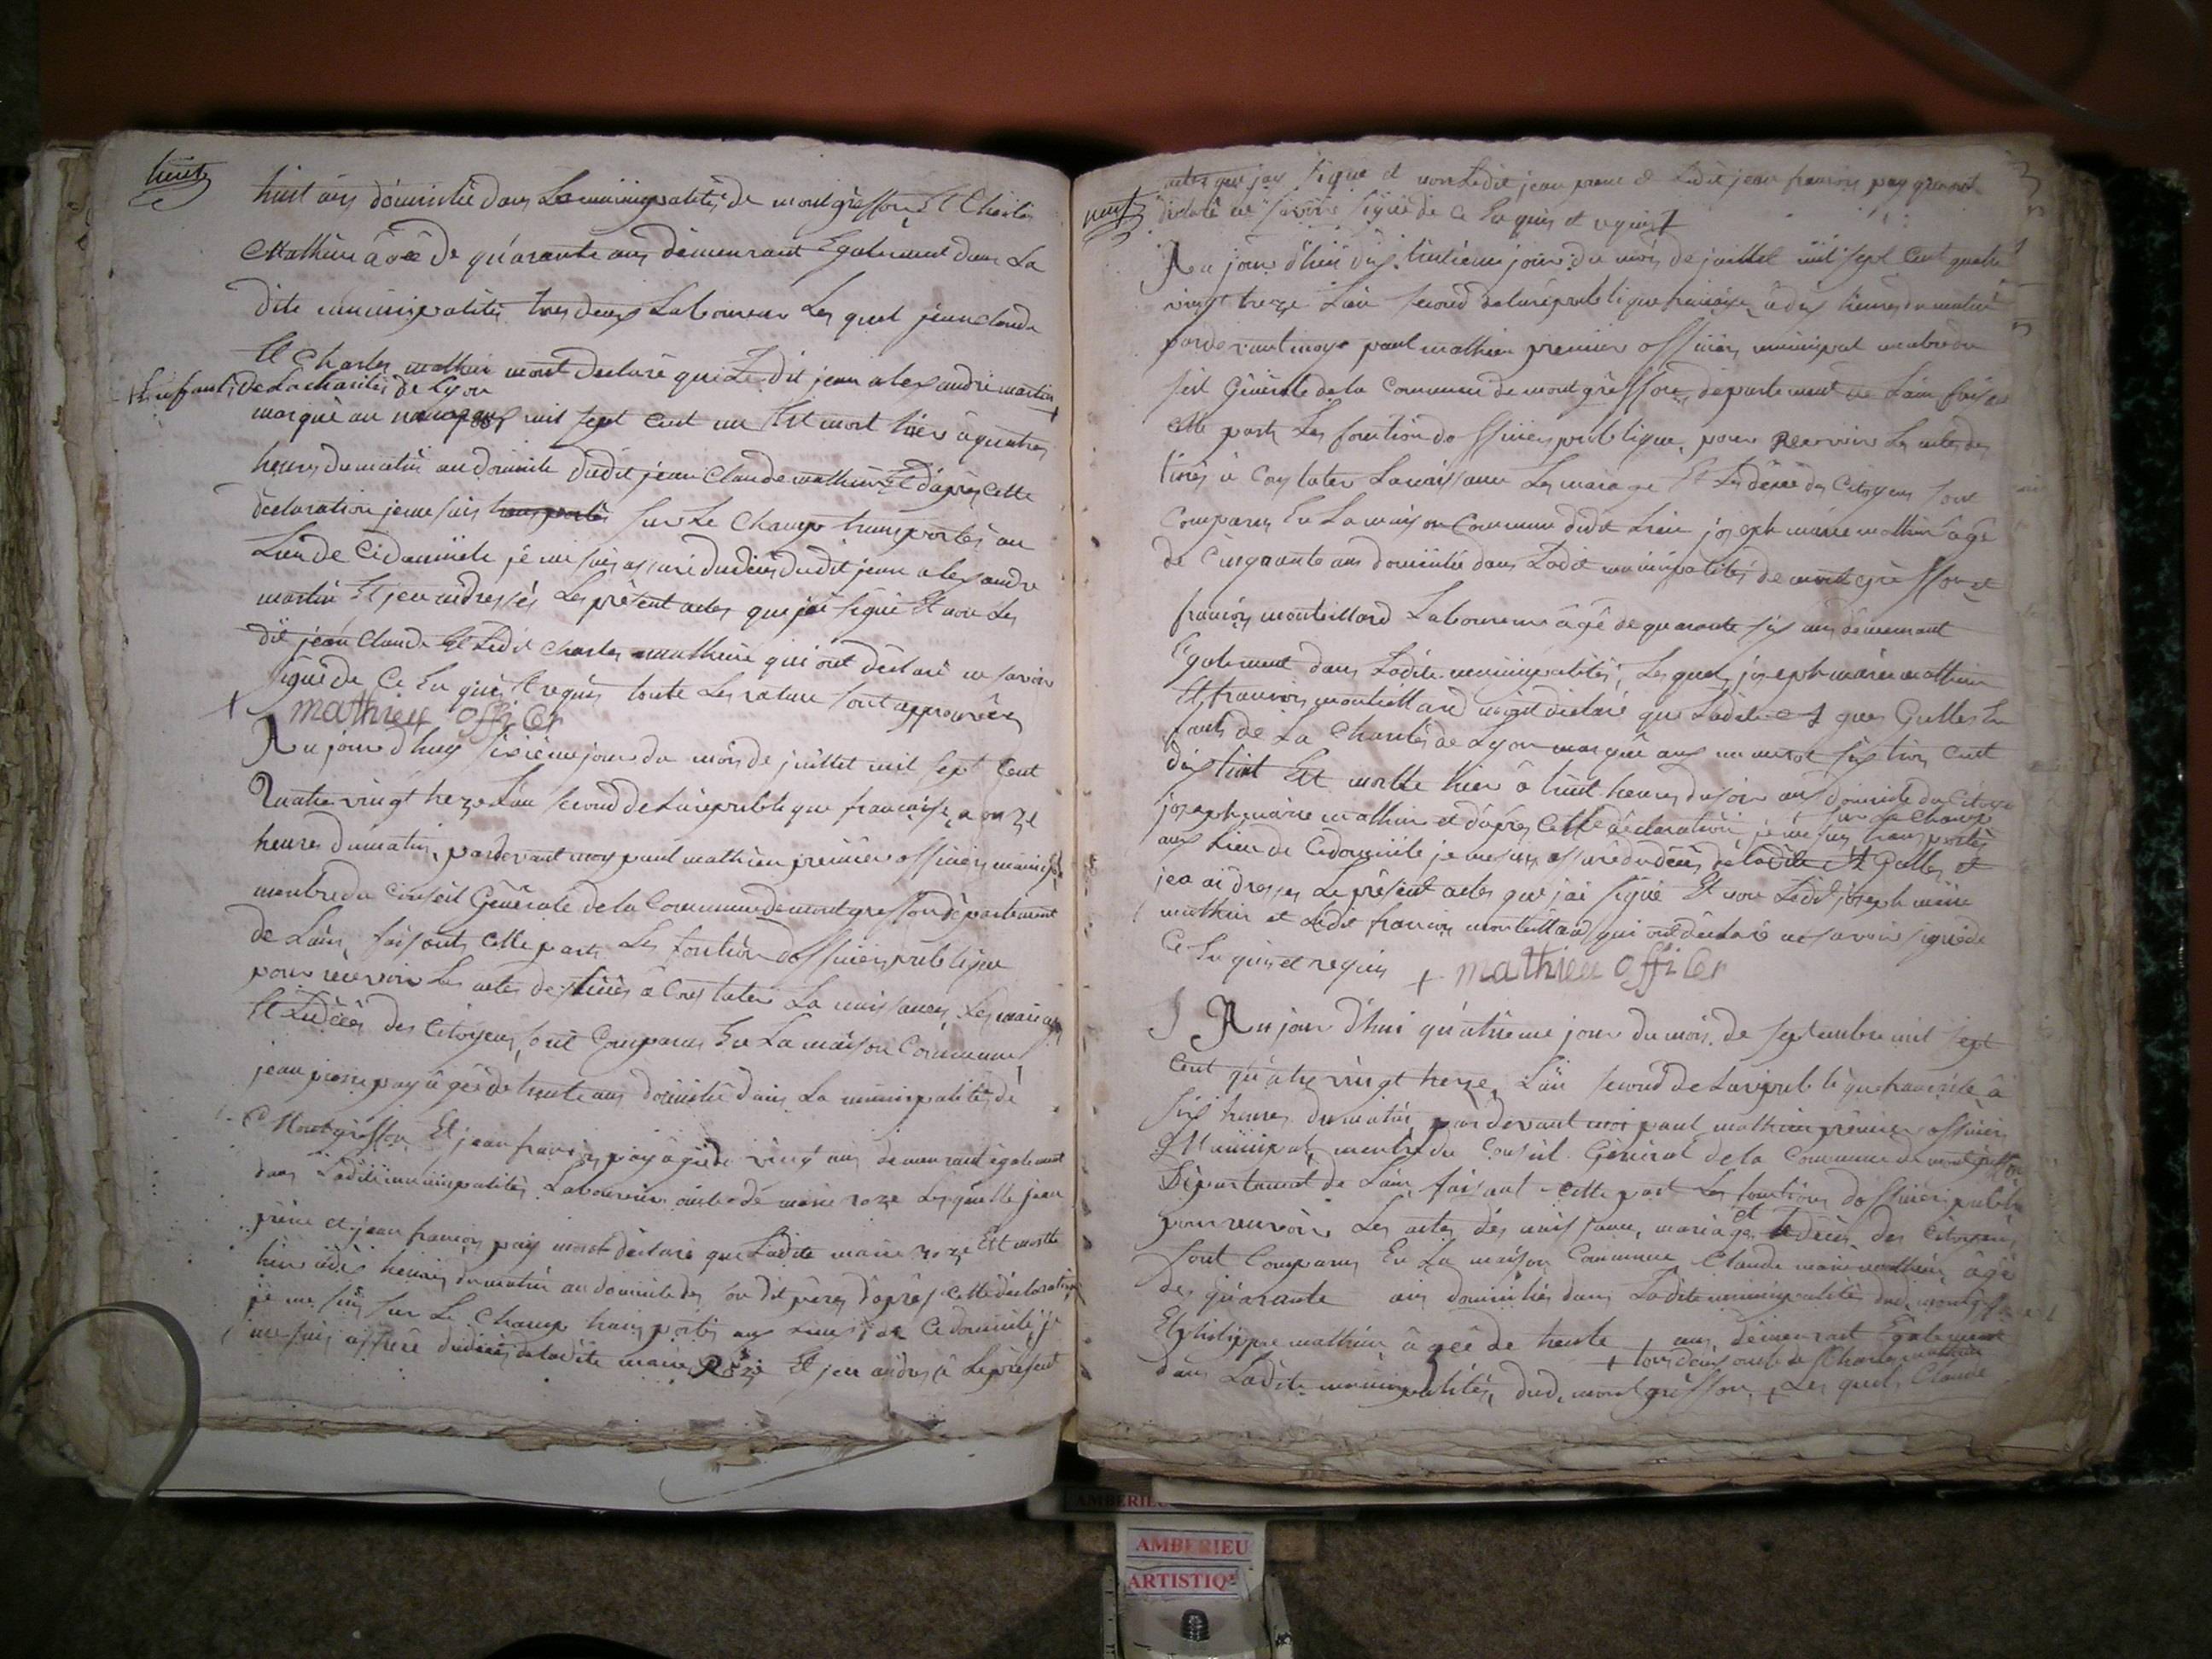 huit
huit ans domicilié dans La municipalités de montgriffon Et Charles
Mathieu âgé de quarante ans demeurant Egalement dans La
dite municipalités tous deux Laboureur Les quel jean claude
Et Charles mathieu mont declaré que Le dit jean alexandre martin
+ Enfant de La charités de Lyon
marqué au mil sept cent un Est mort hier à quatre
heures du matin au domicile dudit jean Claude mathieu Et d'après cette
déclaration je me suis transportés sur Le Champ transportés au
Lieu de Ce domicile je me suis assuré du décès dudit jean alexandre
martin Et jen ai dressés Le présent actes que jai signé Et non Le
dit jean Claude Et Ledit Charles mathieu qui ont déclaré ne savoir
signé de Ce En quis Et requis toute Les rature sont approuvées
+ mathieu officier
Au jour d'huy sixieme jour du mois de juillet mil sept Cent
Quatre vingt treze Lan second de La république française a onze
heures du matin, pardevant moy paul mathieu premier officier municipal
membre du Conseil Générale de la Commune de montgriffon département
de Lain, faisants cette parts Les fontion dofficier publique
pour recevoir Les actes destinés à Constater La naissances, Les mariages
Et Le décès des Citoyens, sont Comparus En La maison Commune
jean pierre pay âgés de trente ans domicilié dans La municipalités de
Montgriffon Et jean françois pay âgé de vingt ans demeurant également
dans Ladite municipalités Laboureur oncle de marie roze Lesquelle jean
pierre et jean françois pay mont déclaré que Ladite marie roze Est morte
hier à dix heures du matin au domicile des d'après cette déclaration
je me suis sur Le Champ transportés aux Lieu de Ce domicile, je
me suis assuré du décès de ladite marie Roze Et jen ai dressé Le présent
neuf
actes que jay signé et non Ledit jean pierre et Ledit jean françois pay qui ont
déclaré ne savoir signé de Ce En quis et requis +
Au jour d'hui dix huitième jour du mois de juillet mil sept Cent quatre
vingt treze Lan second de la république française, à dix heures du matin
pardevant moy paul mathieu premier officier municipal membre du
seil Générale de la Commune de montgriffon, département de Lain faisant
cette parts Les fontion dofficier publique, pour recevoir Les actes des
tinés à Constater La naissance Les mariage Et Le décès des Citoyens sont
Comparus En La maison Commune dudit Lieu joseph marie mathieu âgé
de Cinquante ans domicilié dans Ladite municipalités de montgriffon et
françois monteillard Laboureur âgé de quarante six ans demeurant
Egalement dans Ladite municipalités, Lesquels joseph marie mathieu
Et françois monteillard mont déclaré que Ladite Gulles En
fants de La Charités de Lyon marqué aux numerot six trois Cent
dix huit Est morte hier à huit heures du soir aux domicile du Citoyen
joseph marie mathieu et d'après cette déclaration je me suis sur Le Champ transportés
aux Lieu de Ce domicile je me suis assuré du décès de ladite Gulles et
jen ai dresses Le présent actes que jai signé Et non Ledit joseph marie
mathieu et Ledit françois monteillard qui ont déclaré ne savoir signé de
Ce En quis et requis + mathieu officier
Au jour d'hui quatrième jour du mois de septembre mil sept
Cent quatre vingt treze, Lan second de La république française à
six heures du matin, pardevant moi paul mathieu premier officier
Municipal, membre du Conseil Général de la Commune de montgriffon
Département de Lain, faisant cette part Les fonctions dofficier publique
pour recevoir Les actes des naissance, mariage et le décès des Citoyens,
sont Comparus En La maison Commune Claude marie mathieu âgé
de quarante ans domicilié dans Ladite municipalité dud. montgriffon
Et philippe mathieu âgé de trente + ans demeurant Egalement
+ tous deux oncle de Charles mathieu
dans Ladite municipalités, dud. montgriffon, + Les quels Claude
AMBERIEU
AMBERIEU
ARTISTIQ